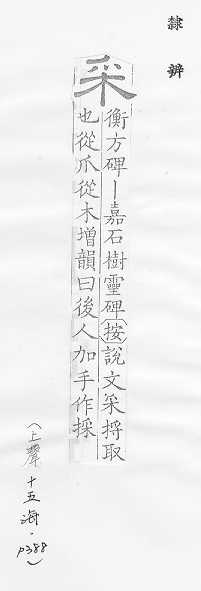 隸辨
采
衡方碑｜嘉石樹靈碑(按)說文采捋取
也從爪從木增韻曰後人加手作採
(上聲十五海·P388)